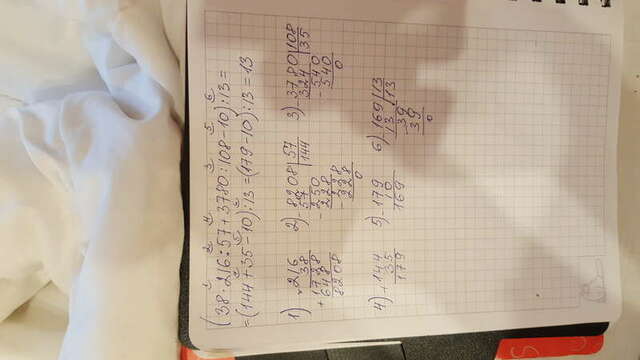 1 2 4 3 5 6
(38·216:57+3780:108-10):13=
4 5 6
=(144+35-10):13=(179-10):13=13
1) 216 2) 8208 57 3) 3780 108
38 57 144 324 35
1728 250 540
648 228 540
8208 228 0
228
0
4) 144 5) 179 6) 169 13
35 10 13 13
179 169 39
39
0
S